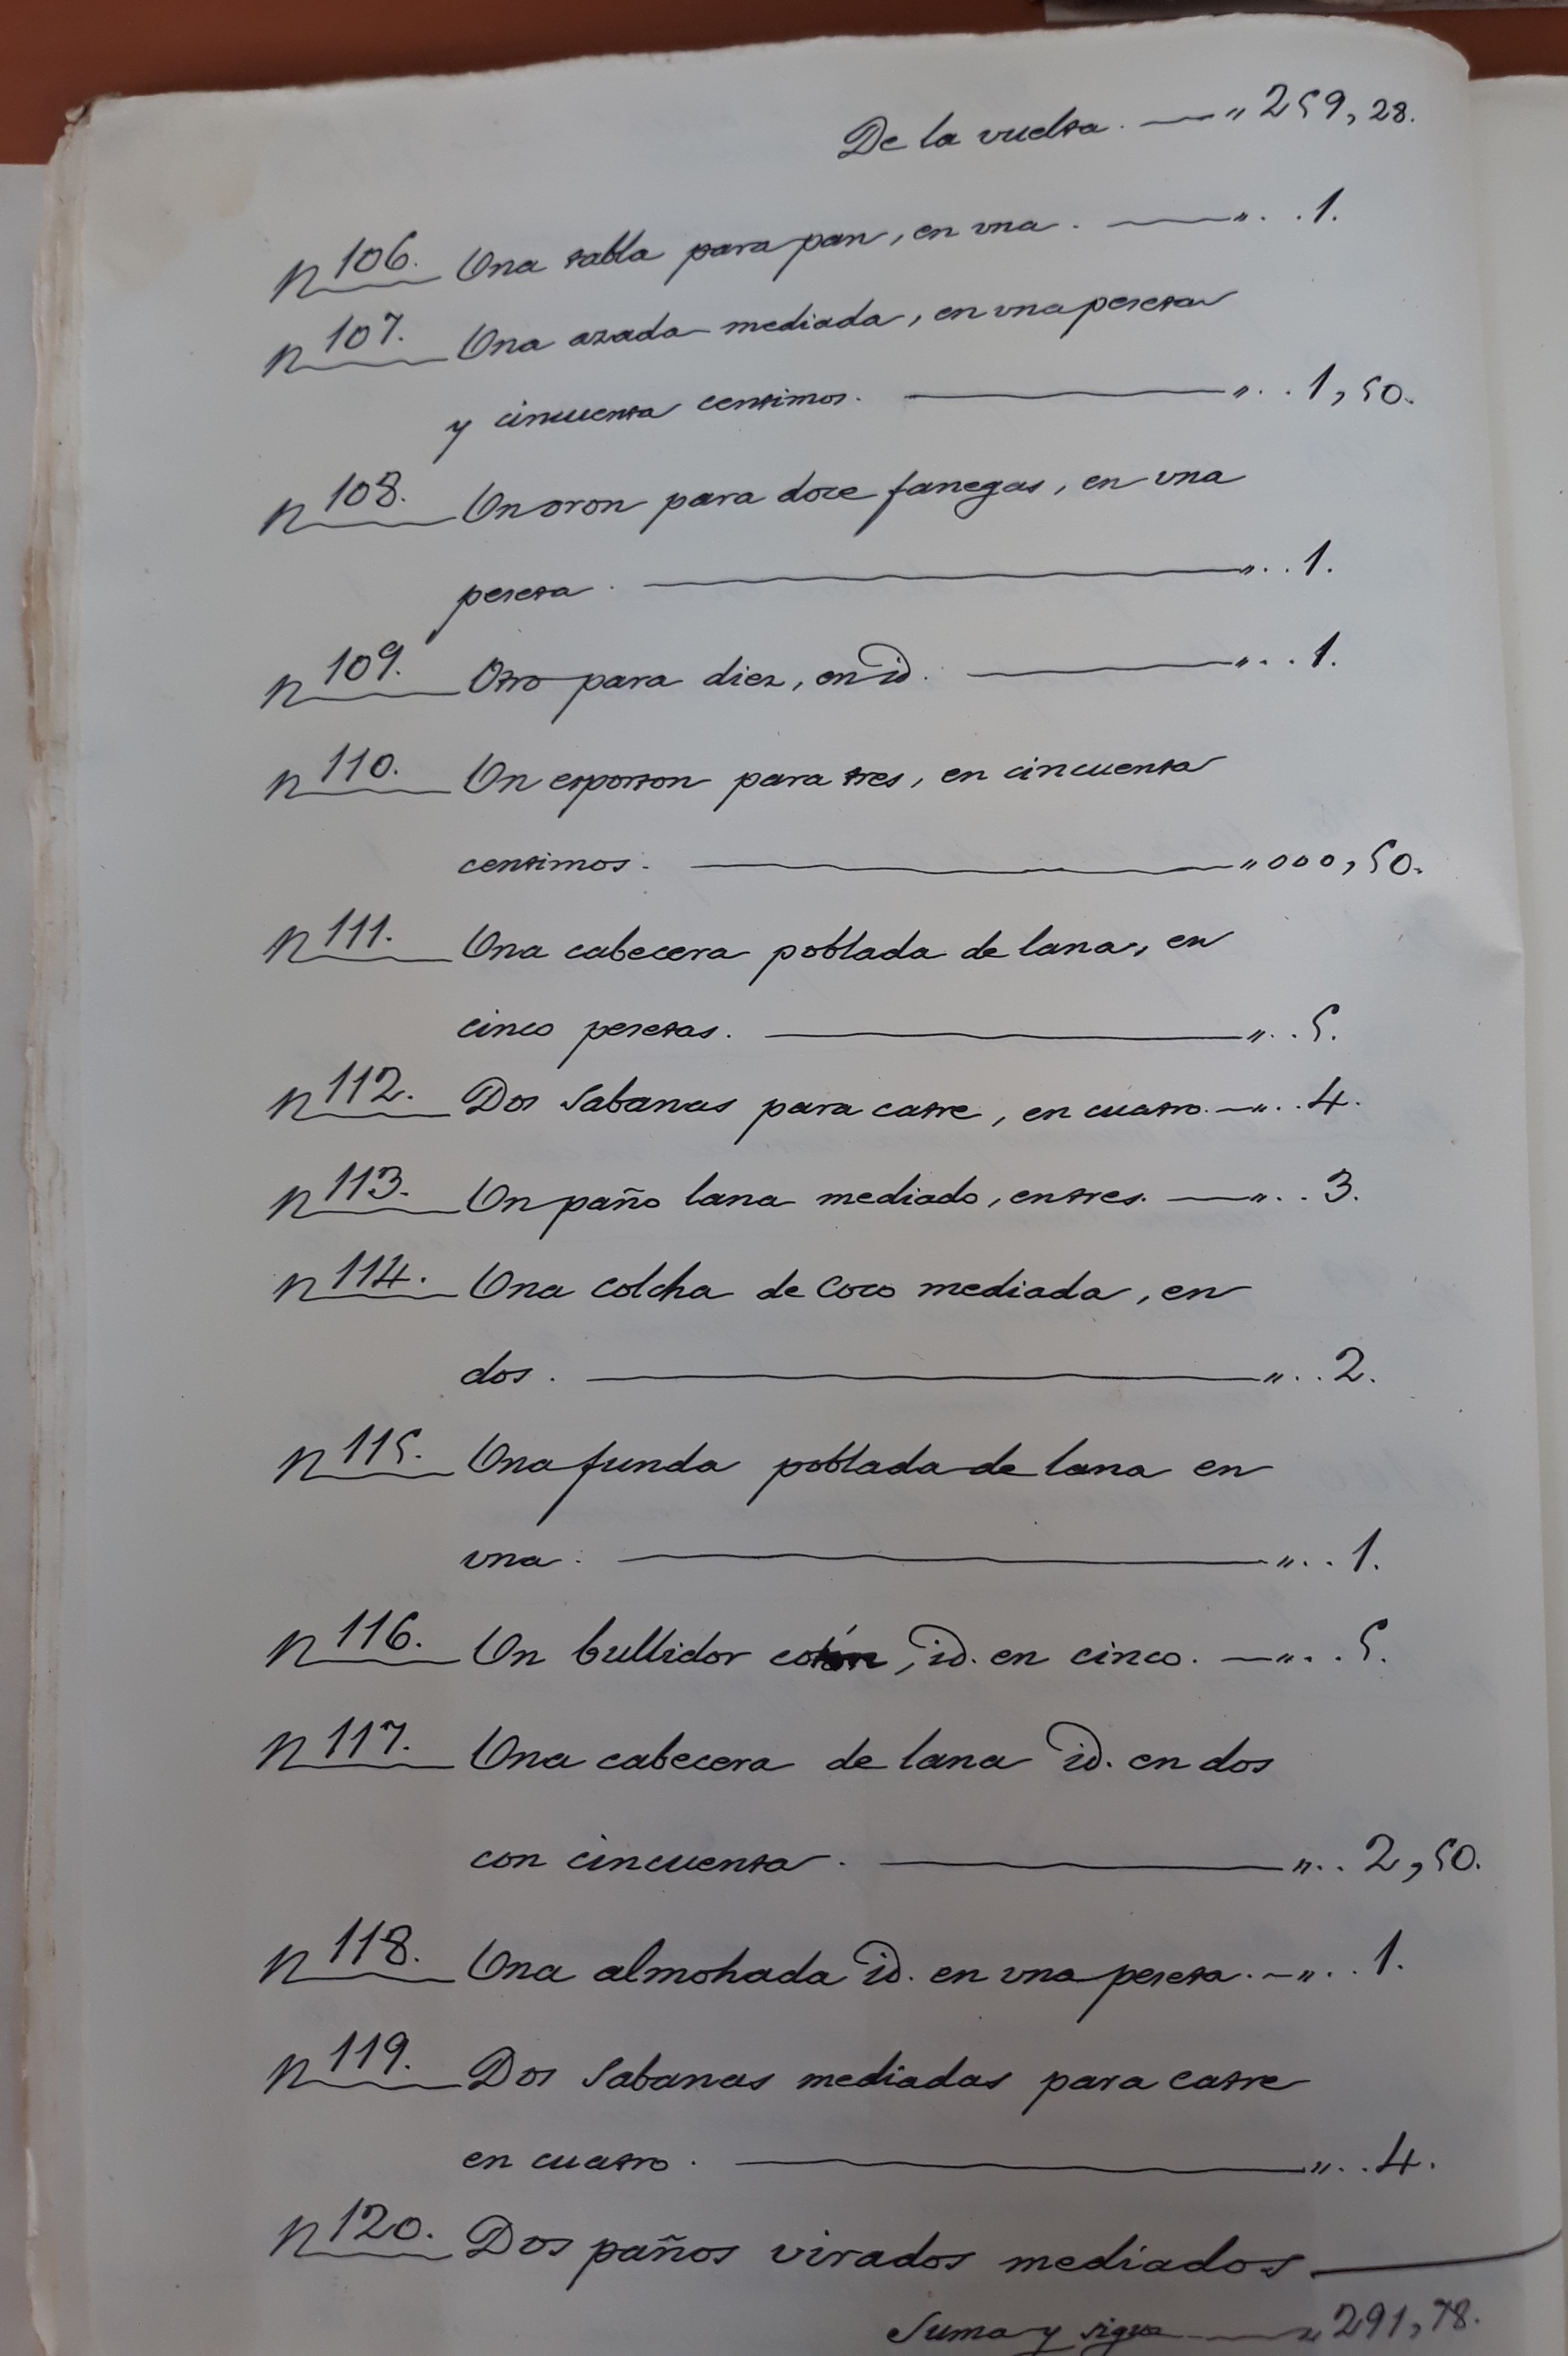 De la vuelta. — " 259, 28.
n 106. Una tabla para pan, en una. — " . . 1.
n 107. Una azada mediada, en una peseta
y cincuenta centimos. — " . . 1, 50.
n 108. Un oron para doce fanegas, en una
peseta. — " . . 1.
n 109. Otro para diez, en id. — " . . . 1.
n 110. Un esporton para tres, en cincuenta
centimos. — " 000, 50.
n 111. Una cabecera poblada de lana, en
cinco pesetas. — " . . 5.
n 112. Dos Sabanas para catre, en cuatro. — " . . 4.
n 113. Un paño lana mediado, en tres. — " . . 3.
n 114. Una colcha de Coco mediada, en
dos. — " . . 2.
n 115. Una funda poblada de lana en
una. — " . . 1.
n 116. Un bullidor cotón, id. en cinco. — " . . 5.
n 117. Una cabecera de lana id. en dos
con cincuenta. — " . . 2, 50.
n 118. Una almohada id. en una peseta. — " . . 1.
n 119. Dos Sabanas mediadas para catre
en cuatro. — " . . 4.
n 120. Dos paños virados mediados —
Suma y sigue — " 291, 78.